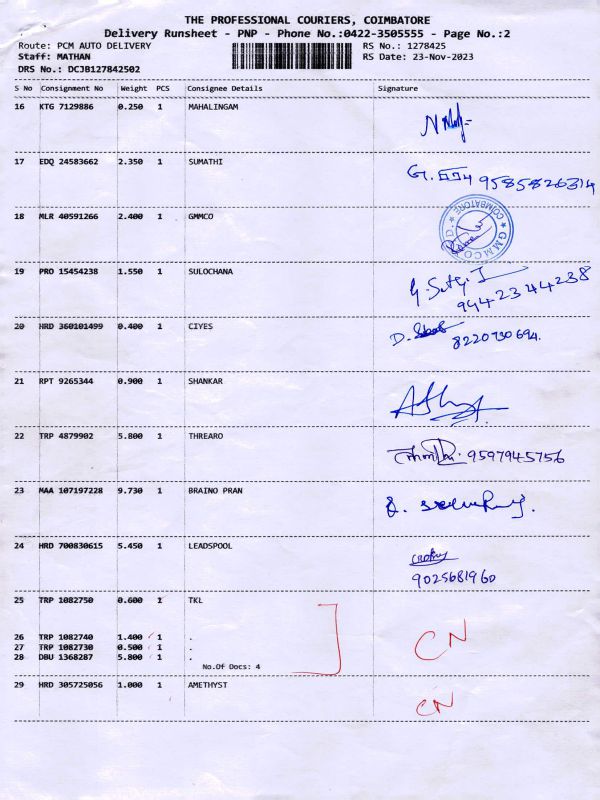 THE PROFESSIONAL COURIERS, COIMBATORE
Delivery Runsheet - PNP - Phone No.:0422-3505555 - Page No.:2
Route: PCM AUTO DELIVERY RS No.: 1278425
Staff: MATHAN RS Date: 23-Nov-2023
DRS No.: DCJB127842502
S No Consignment No Weight PCS Consignee Details Signature
16 KTG 7129886 0.250 1 MAHALINGAM
17 EDQ 24583662 2.350 1 SUMATHI 9585826314
18 MLR 40591266 2.400 1 GMMCO GMMCO COIMBATORE
19 PRO 15454238 1.550 1 SULOCHANA 9442344238
20 HRD 360101499 0.400 1 CIYES 8220730694.
21 RPT 9265344 0.900 1 SHANKAR
22 TRP 4879902 5.800 1 THREARO 9597945756
23 MAA 107197228 9.730 1 BRAINO PRAN
24 HRD 700830615 5.450 1 LEADSPOOL
9025681960
25 TRP 1082750 0.600 1 TKL
26 TRP 1082740 1.400 1 . CN
27 TRP 1082730 0.500 1 .
28 DBU 1368287 5.800 1 .
No.Of Docs: 4
29 HRD 305725056 1.000 1 AMETHYST CN